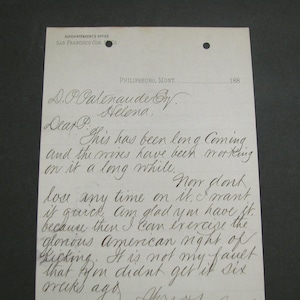 SUPERINTENDENT'S OFFICE
SAN FRANCISCO
PHILIPSBURG, MONT. 188
Helena.
Dear P.
This has been long Coming
and the wires have been working
on it a long while.
Now dont
lose any time on it. I want
it quick. Am glad you have it
because then I can exercise the
glorious American right of
Kicking. It is not my fault
that you didnt get it six
weeks ago